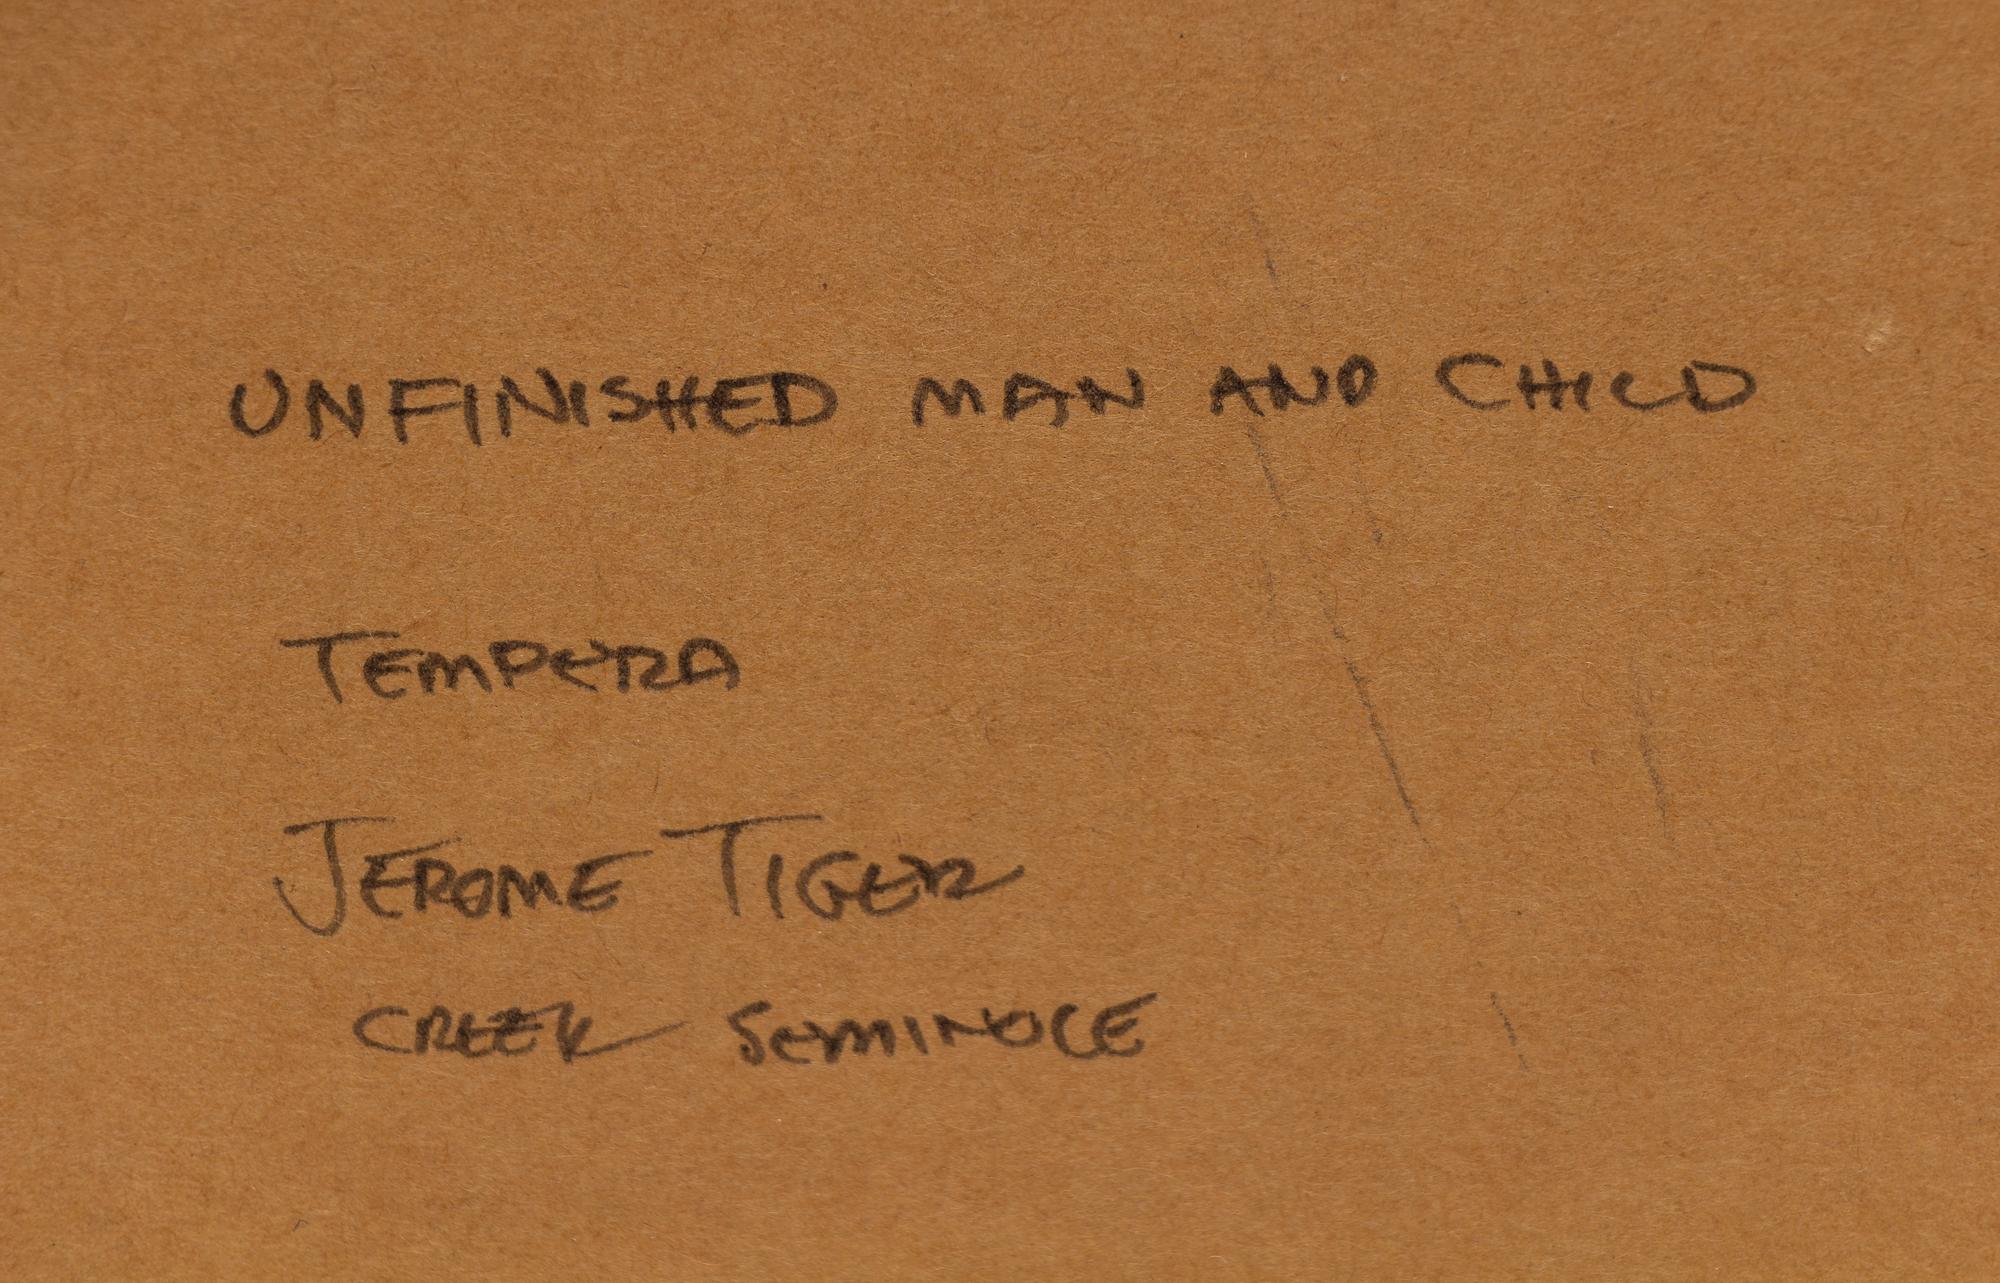 UNFINISHED MAN AND CHILD
TEMPERA
JEROME TIGER
CREEK SEMINOLE